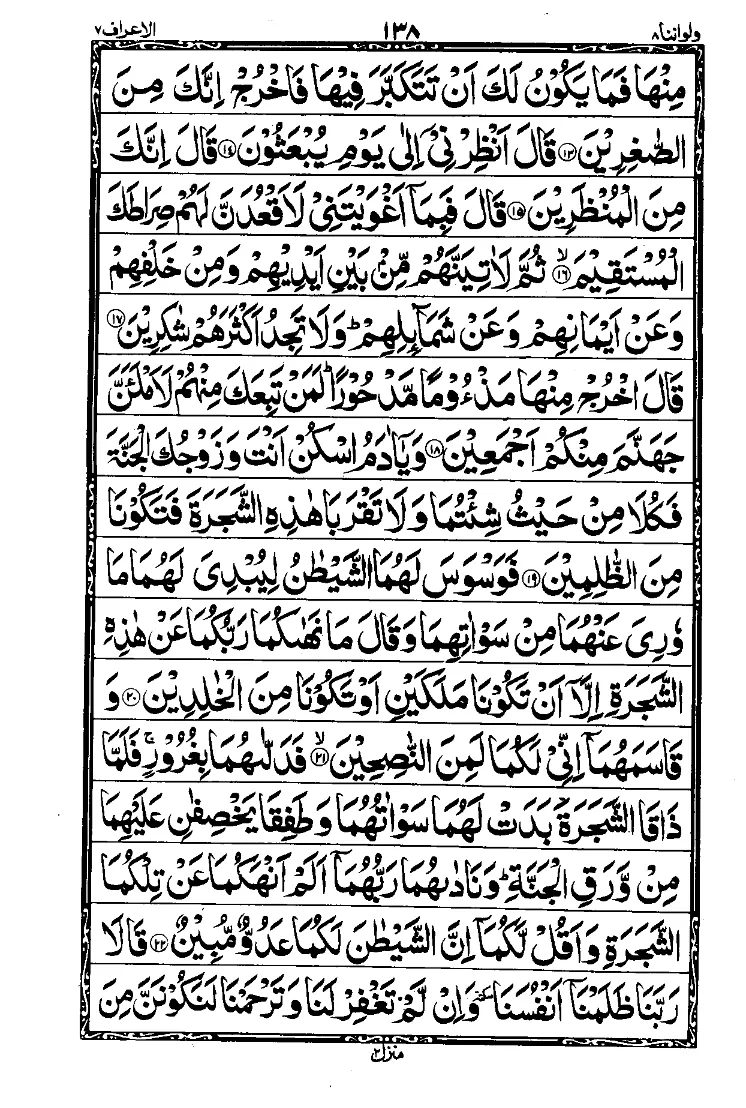 ولواننا ٨ ١٣٨ الاعراف ٧
مِنْهَا فَمَا يَكُوْنُ لَكَ اَنْ تَتَكَبَّرَ فِيْهَا فَاخْرُجْ اِنَّكَ مِنَ
الصّٰغِرِيْنَ ۝١٣ قَالَ اَنْظِرْنِىْۤ اِلٰى يَوْمِ يُبْعَثُوْنَ ۝١٤ قَالَ اِنَّكَ
مِنَ الْمُنْظَرِيْنَ ۝١٥ قَالَ فَبِمَاۤ اَغْوَيْتَنِىْ لَاَقْعُدَنَّ لَهُمْ صِرَاطَكَ
الْمُسْتَقِيْمَ ۙ۝١٦ ثُمَّ لَاٰتِيَنَّهُمْ مِّنْۢ بَيْنِ اَيْدِيْهِمْ وَمِنْ خَلْفِهِمْ
وَعَنْ اَيْمَانِهِمْ وَعَنْ شَمَآئِلِهِمْ ؕ وَلَا تَجِدُ اَكْثَرَهُمْ شٰكِرِيْنَ ۝١٧
قَالَ اخْرُجْ مِنْهَا مَذْءُوْمًا مَّدْحُوْرًا ؕ لَمَنْ تَبِعَكَ مِنْهُمْ لَاَمْلَئَنَّ
جَهَنَّمَ مِنْكُمْ اَجْمَعِيْنَ ۝١٨ وَيٰۤاٰدَمُ اسْكُنْ اَنْتَ وَزَوْجُكَ الْجَنَّةَ
فَكُلَا مِنْ حَيْثُ شِئْتُمَا وَلَا تَقْرَبَا هٰذِهِ الشَّجَرَةَ فَتَكُوْنَا
مِنَ الظّٰلِمِيْنَ ۝١٩ فَوَسْوَسَ لَهُمَا الشَّيْطٰنُ لِيُبْدِىَ لَهُمَا مَا
وٗرِىَ عَنْهُمَا مِنْ سَوْاٰتِهِمَا وَقَالَ مَا نَهٰىكُمَا رَبُّكُمَا عَنْ هٰذِهِ
الشَّجَرَةِ اِلَّاۤ اَنْ تَكُوْنَا مَلَكَيْنِ اَوْ تَكُوْنَا مِنَ الْخٰلِدِيْنَ ۝٢٠ وَ
قَاسَمَهُمَاۤ اِنِّىْ لَكُمَا لَمِنَ النّٰصِحِيْنَ ۙ۝٢١ فَدَلّٰىهُمَا بِغُرُوْرٍ ۚ فَلَمَّا
ذَاقَا الشَّجَرَةَ بَدَتْ لَهُمَا سَوْاٰتُهُمَا وَطَفِقَا يَخْصِفٰنِ عَلَيْهِمَا
مِنْ وَّرَقِ الْجَنَّةِ ؕ وَنَادٰىهُمَا رَبُّهُمَاۤ اَلَمْ اَنْهَكُمَا عَنْ تِلْكُمَا
الشَّجَرَةِ وَاَقُلْ لَّكُمَاۤ اِنَّ الشَّيْطٰنَ لَكُمَا عَدُوٌّ مُّبِيْنٌ ۝٢٢ قَالَا
رَبَّنَا ظَلَمْنَاۤ اَنْفُسَنَا سكتة وَاِنْ لَّمْ تَغْفِرْ لَنَا وَتَرْحَمْنَا لَنَكُوْنَنَّ مِنَ
منزل ٢